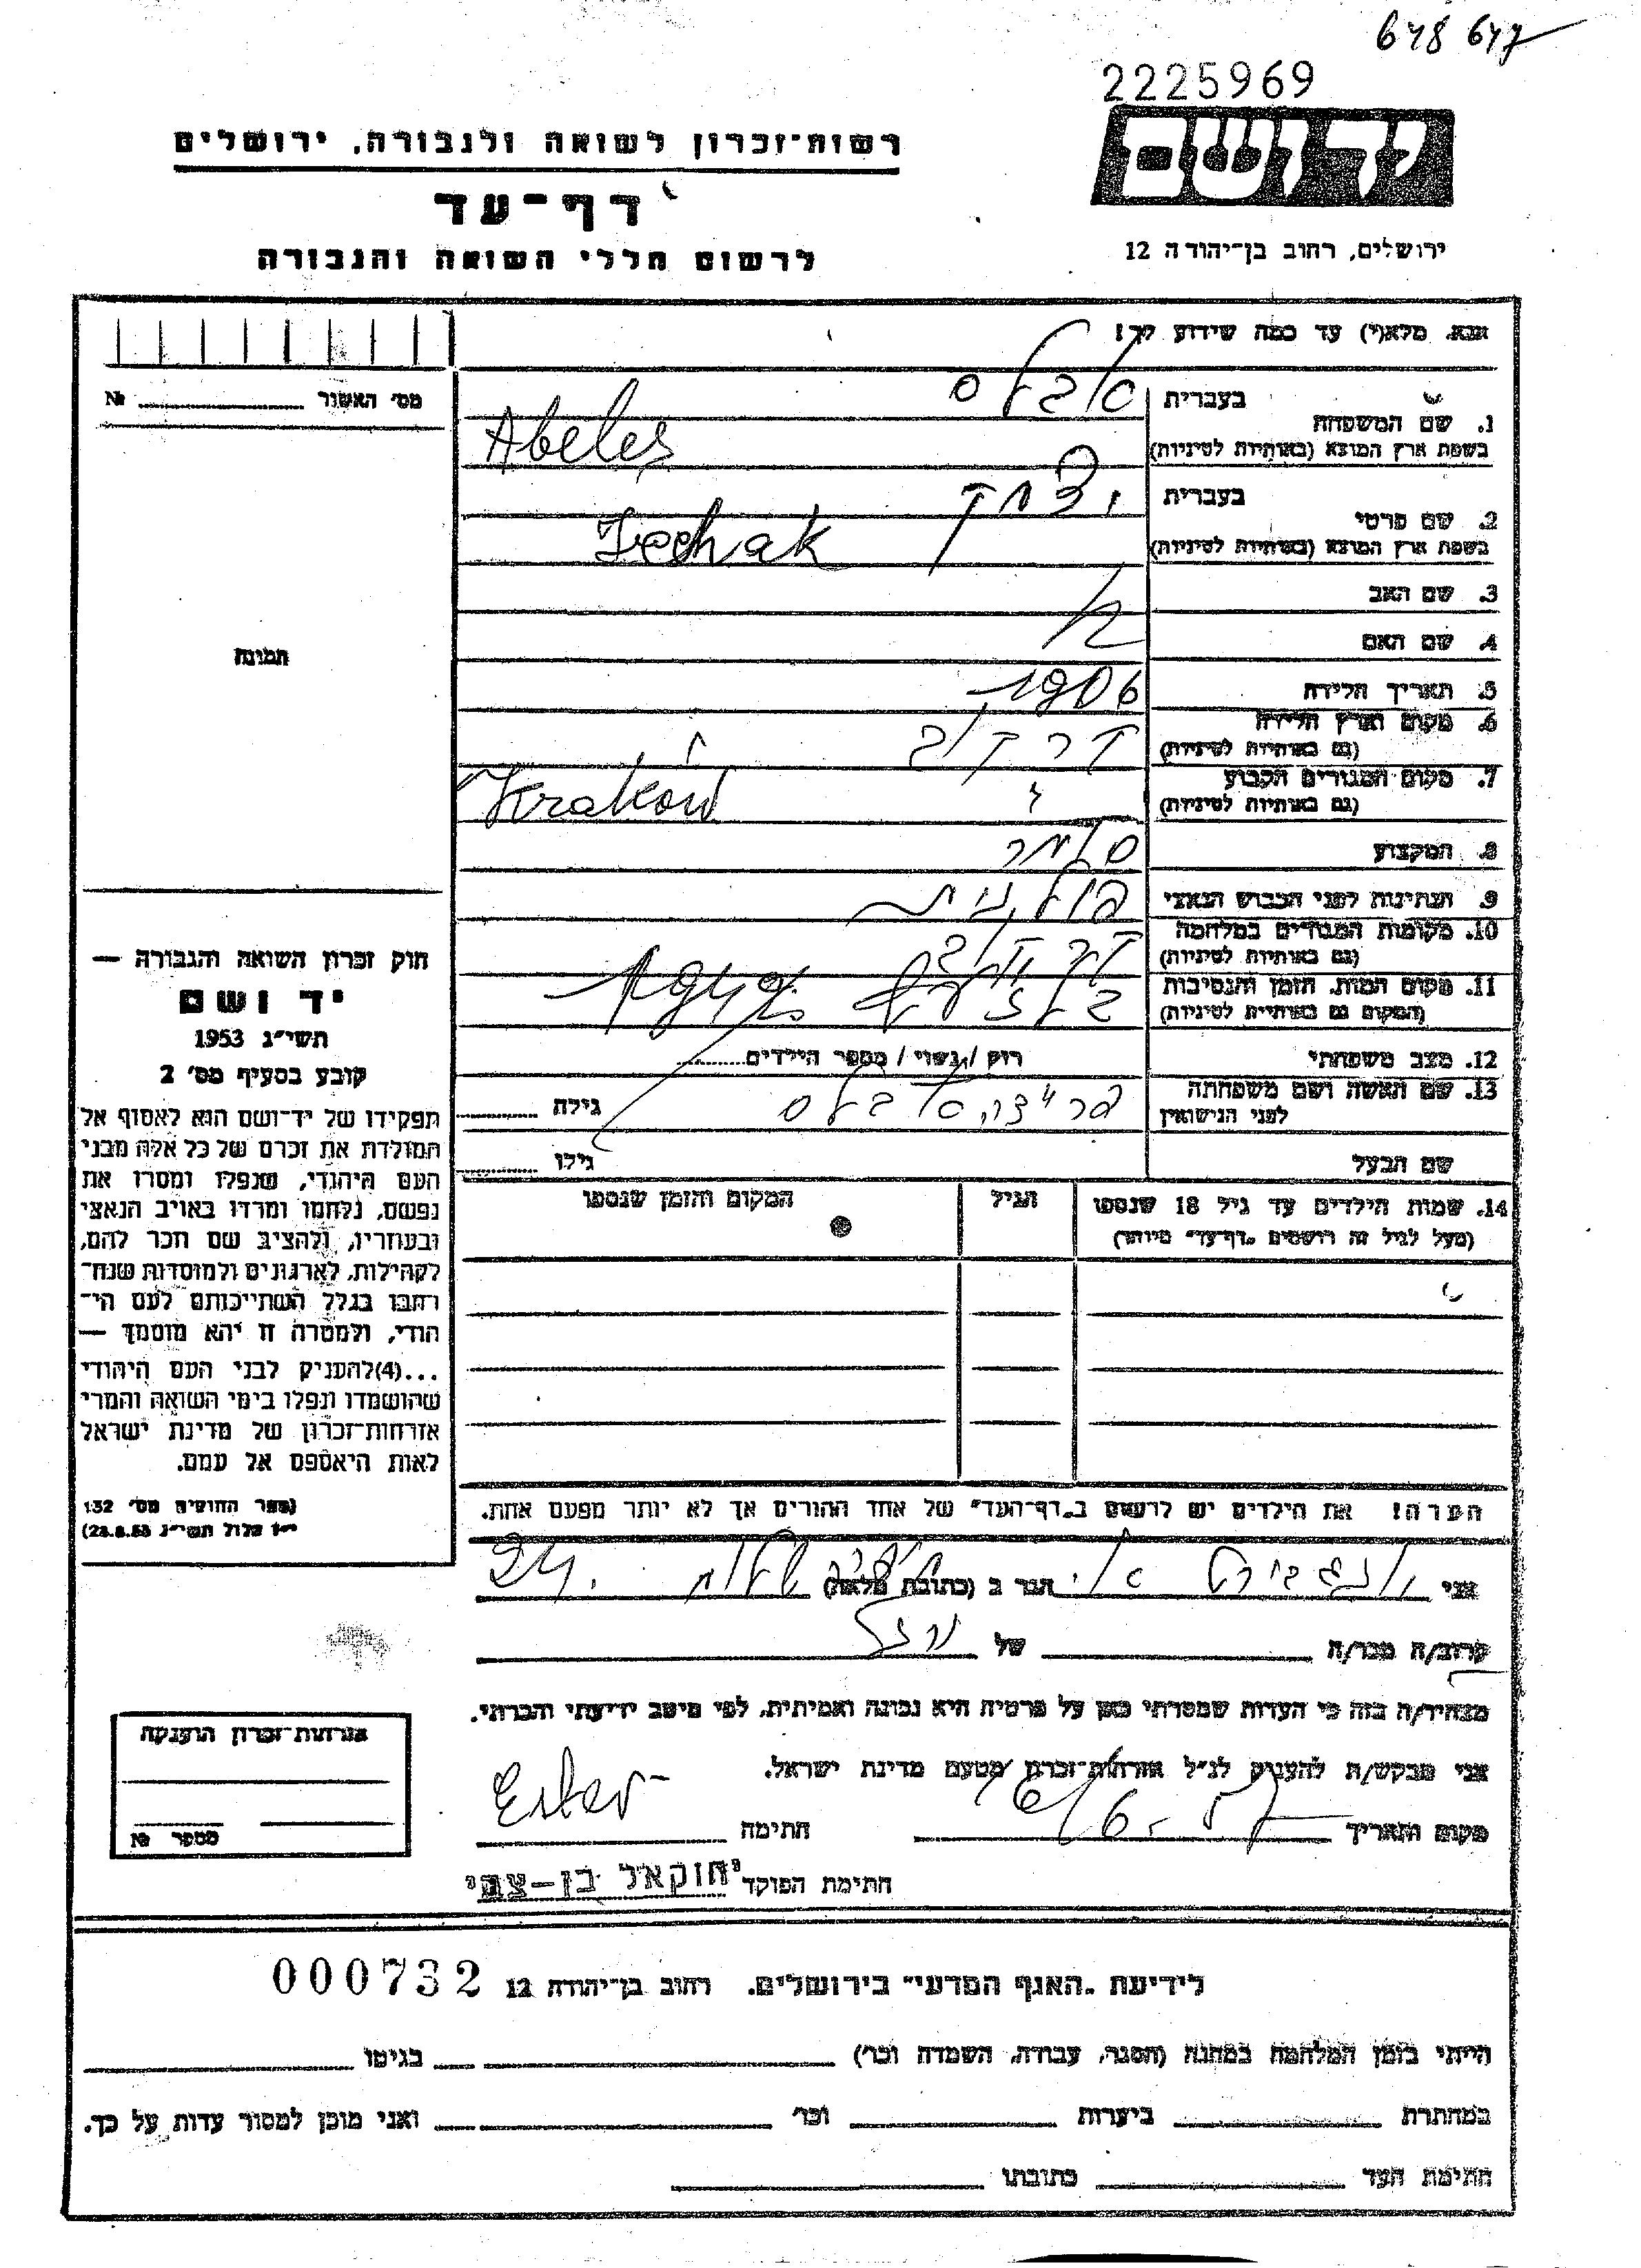 648 647
2225969
רשות־זכרון לשואה ולגבורה, ירושלים
ידושם
דף־עד
ירושלים, רחוב בן־יהודה 12
לרשום חללי השואה והגבורה
אנא, מלא(י) עד כמה שידוע לך!
מס' האשור № 
1. שם המשפחה
בעברית אבלס
בשפת ארץ המוצא (באותיות לטיניות) Abeles
2. שם פרטי
בעברית יצחק
בשפת ארץ המוצא (באותיות לטיניות)
3. שם האב
4. שם האם
תמונה
5. תאריך הלידה 1906
6. מקום וארץ הלידה קרקוב
(גם באותיות לטיניות)
7. מקום המגורים הקבוע Krakow
(גם באותיות לטיניות)
8. המקצוע סוחר
9. הנתינות לפני הכבוש הנאצי פולנית
10. מקומות המגורים במלחמה קרקוב
(גם באותיות לטיניות)
11. מקום המות, הזמן והנסיבות
(המקום גם באותיות לטיניות)
12. מצב משפחתי רווק / נשוי / מספר הילדים
13. שם האשה ושם משפחתה אבלס גילה
לפני הנישואין
שם הבעל גילו
14. שמות הילדים עד גיל 18 שנספו הגיל המקום והזמן שנספו
(מעל לגיל זה רושמים „דף־עד" מיוחד)
חוק זכרון השואה והגבורה —
יד ושם
תשי״ג 1953
קובע בסעיף מס' 2
תפקידו של יד־ושם הוא לאסוף אל
המולדת את זכרם של כל אלה מבני
העם היהודי, שנפלו ומסרו את
נפשם, נלחמו ומרדו באויב הנאצי
ובעוזריו, ולהציב שם וזכר להם,
לקהילות, לארגונים ולמוסדות שנח־
רבו בגלל השתייכותם לעם הי־
הודי, ולמטרה זו יהא מוסמך —
...(4)להעניק לבני העם היהודי
שהושמדו ונפלו בימי השואה והמרי
אזרחות־זכרון של מדינת ישראל
לאות היאספם אל עמם.
(ספר החוקים מס' 132
י״ז אלול תשי״ג 28.8.53)
הערה! את הילדים יש לרשום ב„דף־העד" של אחד ההורים אך לא יותר מפעם אחת.
אני הגר ב (כתובת מלאה) 24
קרוב/ה מכר/ה של
מצהיר/ה בזה כי העדות שמסרתי כאן על פרטיה היא נכונה ואמיתית, לפי מיטב ידיעתי והכרתי.
אני מבקש/ת להעניק לנ״ל אזרחות־זכרון מטעם מדינת ישראל.
מקום ותאריך חתימה
חתימת הפוקד יחזקאל בן־צבי
אזרחות־זכרון הוענקה
מספר №
לידיעת „האגף המדעי" בירושלים, רחוב בן־יהודה 12 000732
הייתי בזמן המלחמה במחנה (הסגר, עבודה, השמדה וכו') בגיטו
במחתרת ביערות וכו' ואני מוכן למסור עדות על כך.
חתימת העד כתובתו